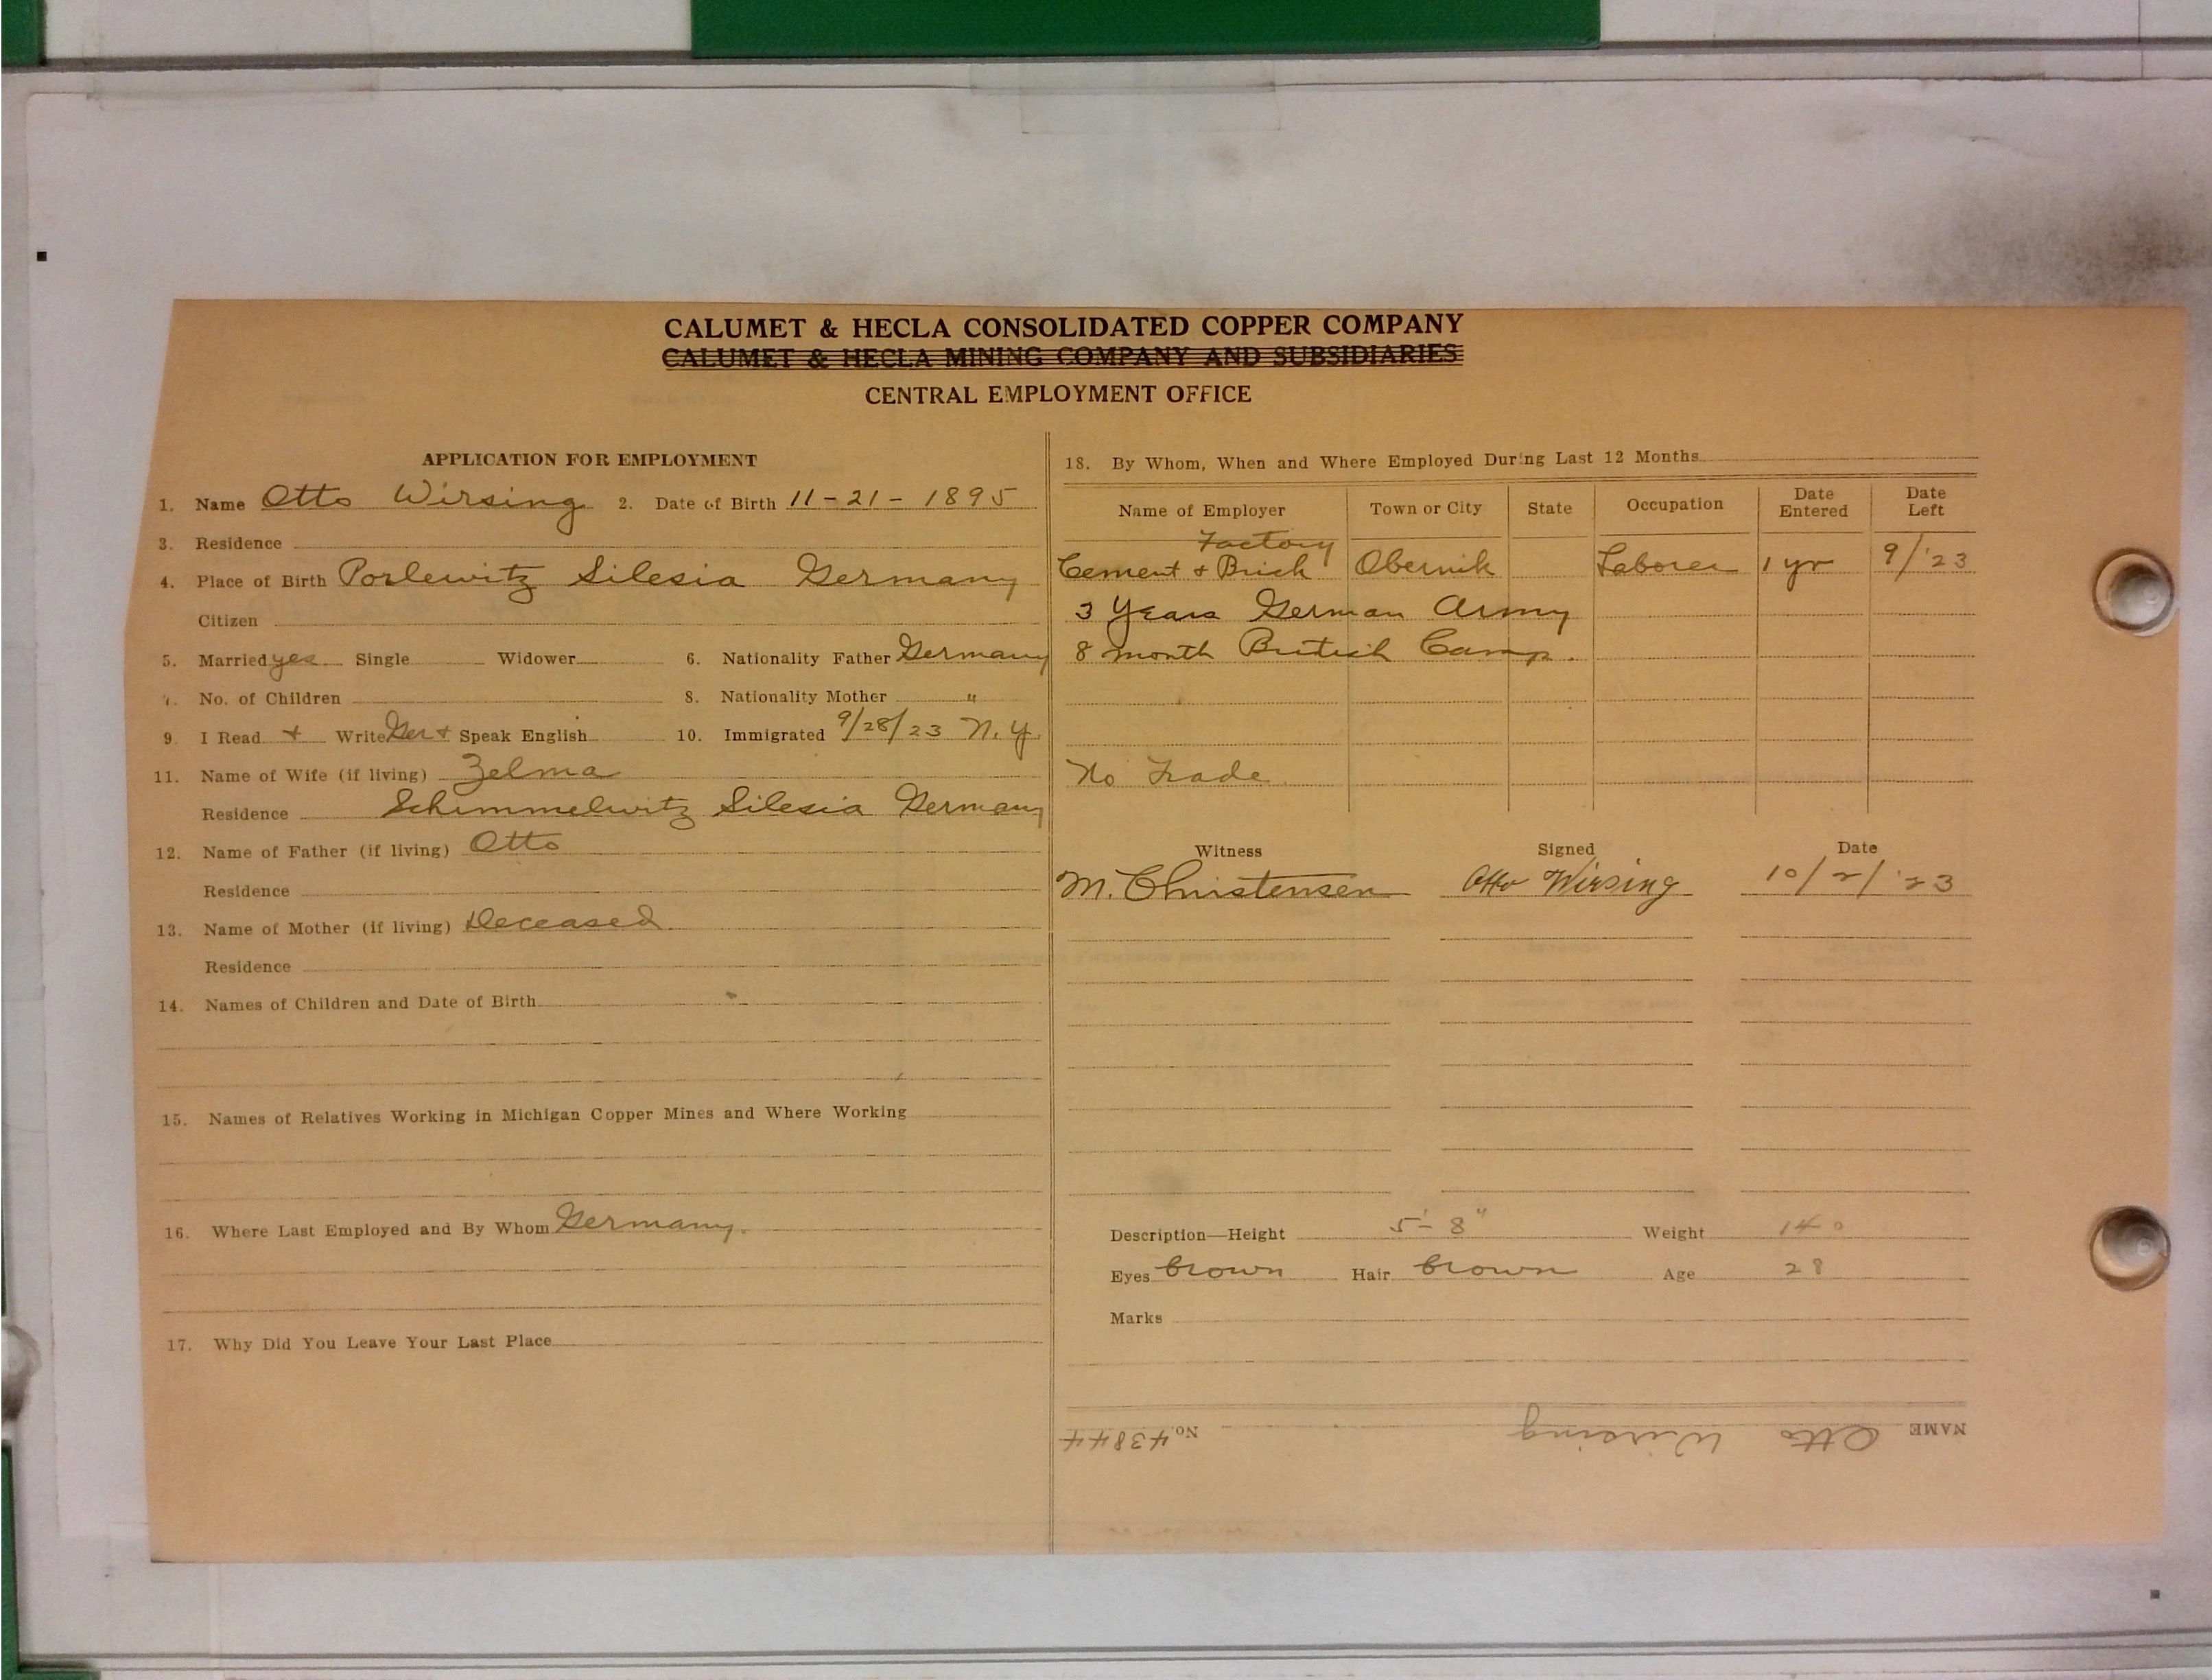 CALUMET & HECLA CONSOLIDATED COPPER COMPANY
CALUMET & HECLA MINING COMPANY AND SUBSIDIARIES
CENTRAL EMPLOYMENT OFFICE
APPLICATION FOR EMPLOYMENT
1. Name Otto Wirsing 2. Date of Birth 11-21-1895
3. Residence
4. Place of Birth Porlewitz Silesia Germany
Citizen
5. Married yes Single Widower 6. Nationality Father Germany
7. No. of Children 8. Nationality Mother "
9. I Read + Write Ger + Speak English 10. Immigrated 9/28/23 N.Y.
11. Name of Wife (if living) Zelma
Residence Schimmelwitz Silesia Germany
12. Name of Father (if living) Otto
Residence
13. Name of Mother (if living) Deceased
Residence
14. Names of Children and Date of Birth
15. Names of Relatives Working in Michigan Copper Mines and Where Working
16. Where Last Employed and By Whom Germany.
17. Why Did You Leave Your Last Place
18. By Whom, When and Where Employed During Last 12 Months
Name of Employer Town or City State Occupation Date Entered Date Left
Factory
Cement + Brick Obernik Laborer 1 yr 9/'23
3 Years German Army
8 month British Camp.
No Trade
Witness Signed Date
M. Christensen Otto Wirsing 10/2/'23
Description—Height 5'-8" Weight 140
Eyes brown Hair brown Age 28
Marks
NAME Otto Wirsing No. 43844